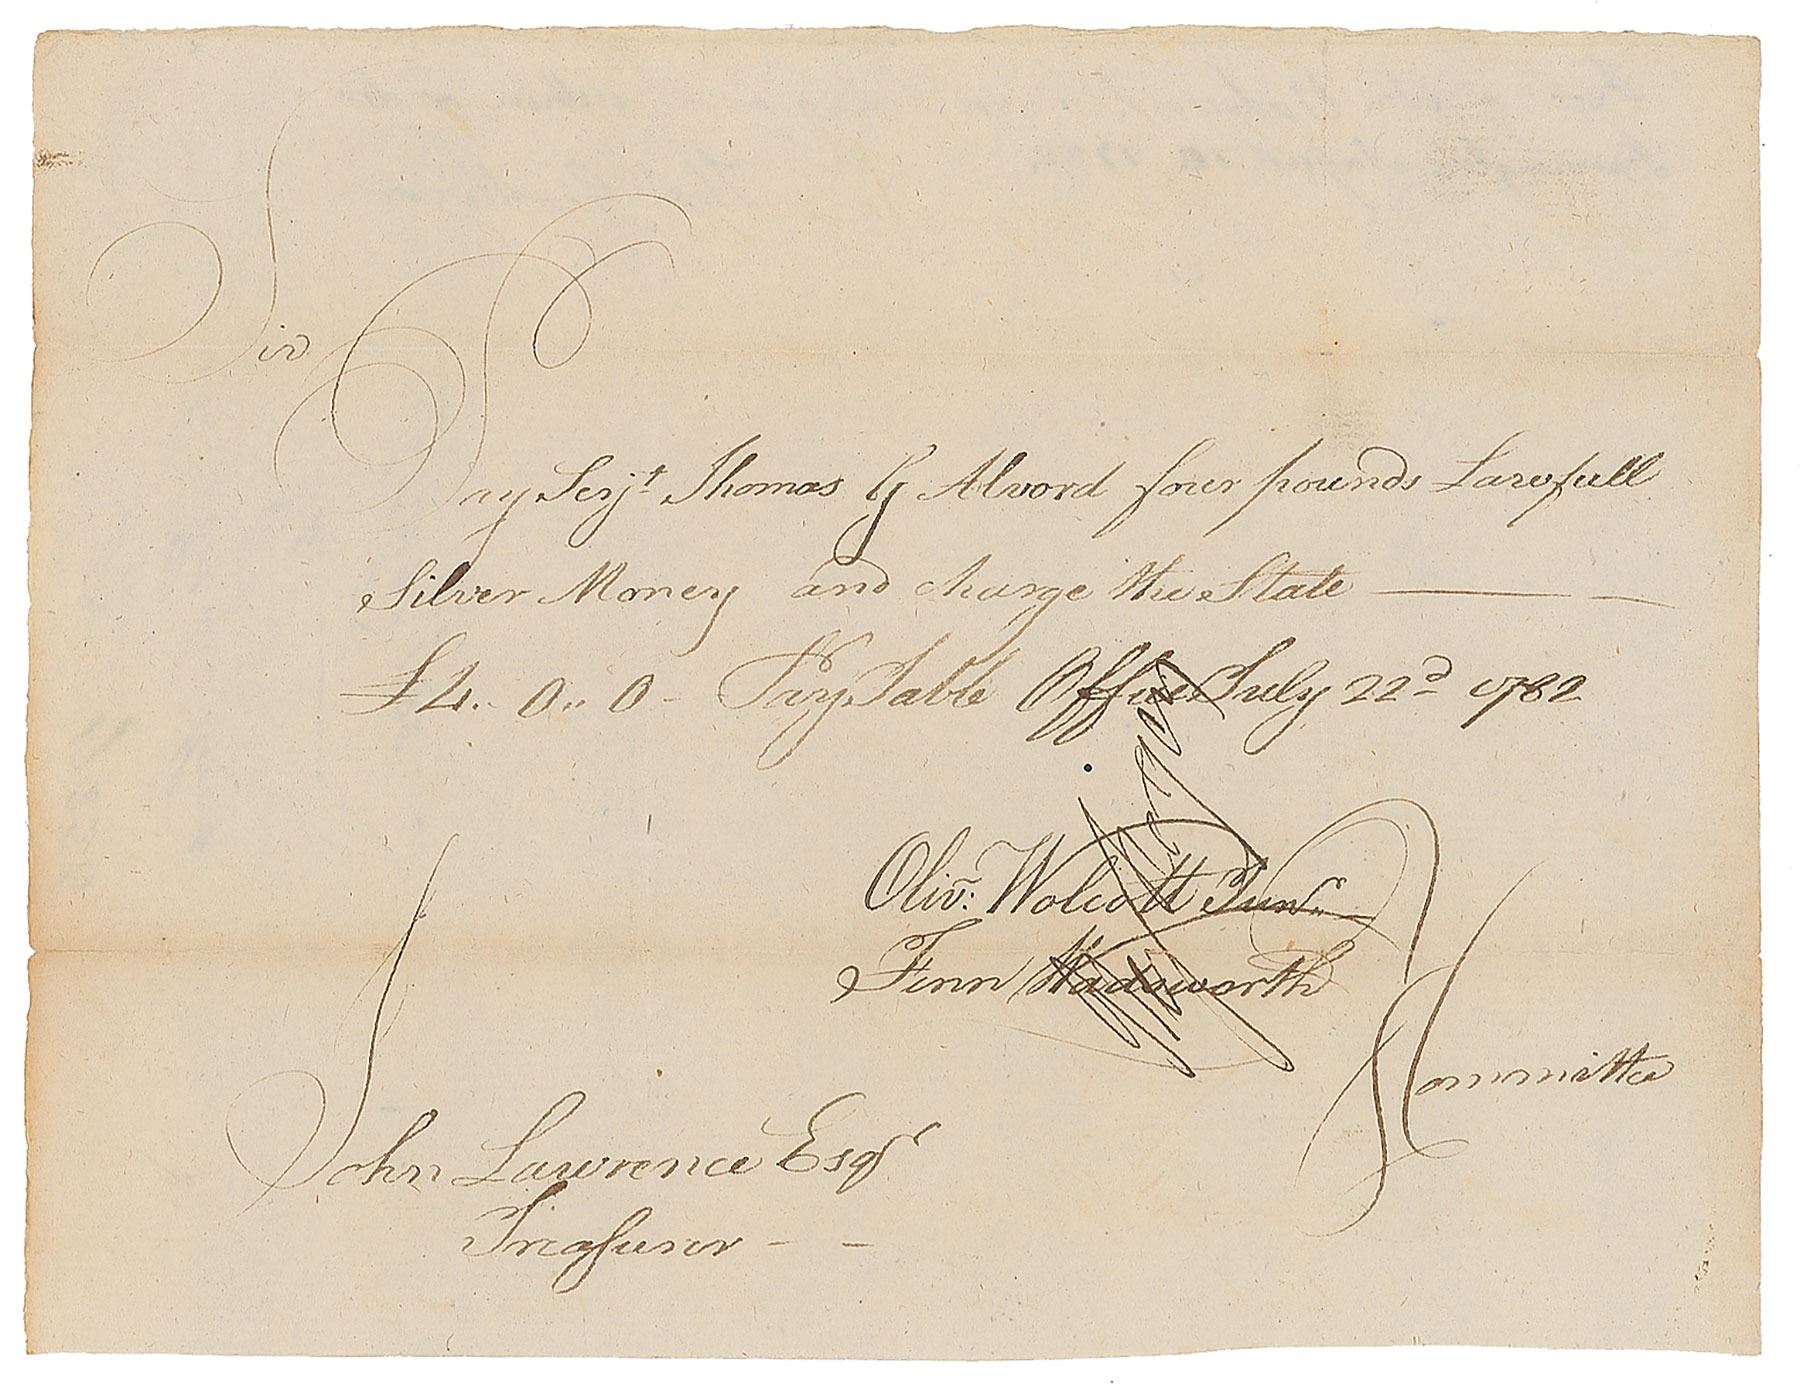 Sir
Pay Serjt Thomas G Alvord four pounds Lawfull
Silver Money and charge the State
£4.. 0.. 0 - Pay Table Office July 22d 1782
Oliv: Wolcott Junr
Fenn Wadsworth
Committee
John Lawrence Esqr
Treasurer - -